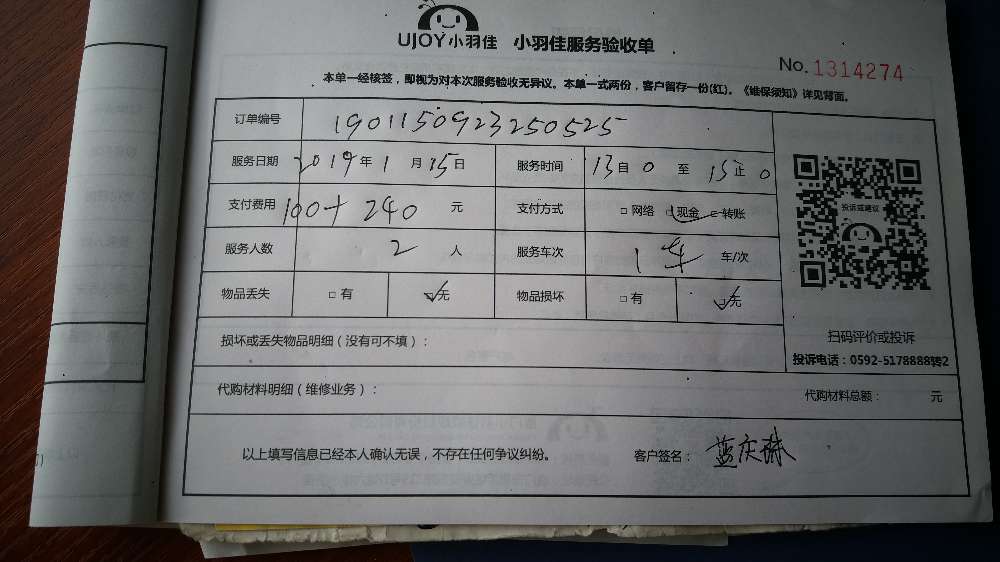 UJOY小羽佳 小羽佳服务验收单
No.1314274
本单一经核签，即视为对本次服务验收无异议。本单一式两份，客户留存一份(红)。《维保须知》详见背面。
订单编号 1901150923250525
服务日期 2019年1月15日 服务时间 13自0 至 15正0
支付费用 100+240 元 支付方式 □网络 □现金 □转账
服务人数 2 人 服务车次 1车 车/次
物品丢失 □有 □无 物品损坏 □有 □无
投诉或建议
扫码评价或投诉
投诉电话：0592-5178888转2
损坏或丢失物品明细（没有可不填）：
代购材料明细（维修业务）： 代购材料总额： 元
以上填写信息已经本人确认无误，不存在任何争议纠纷。 客户签名：蓝庆